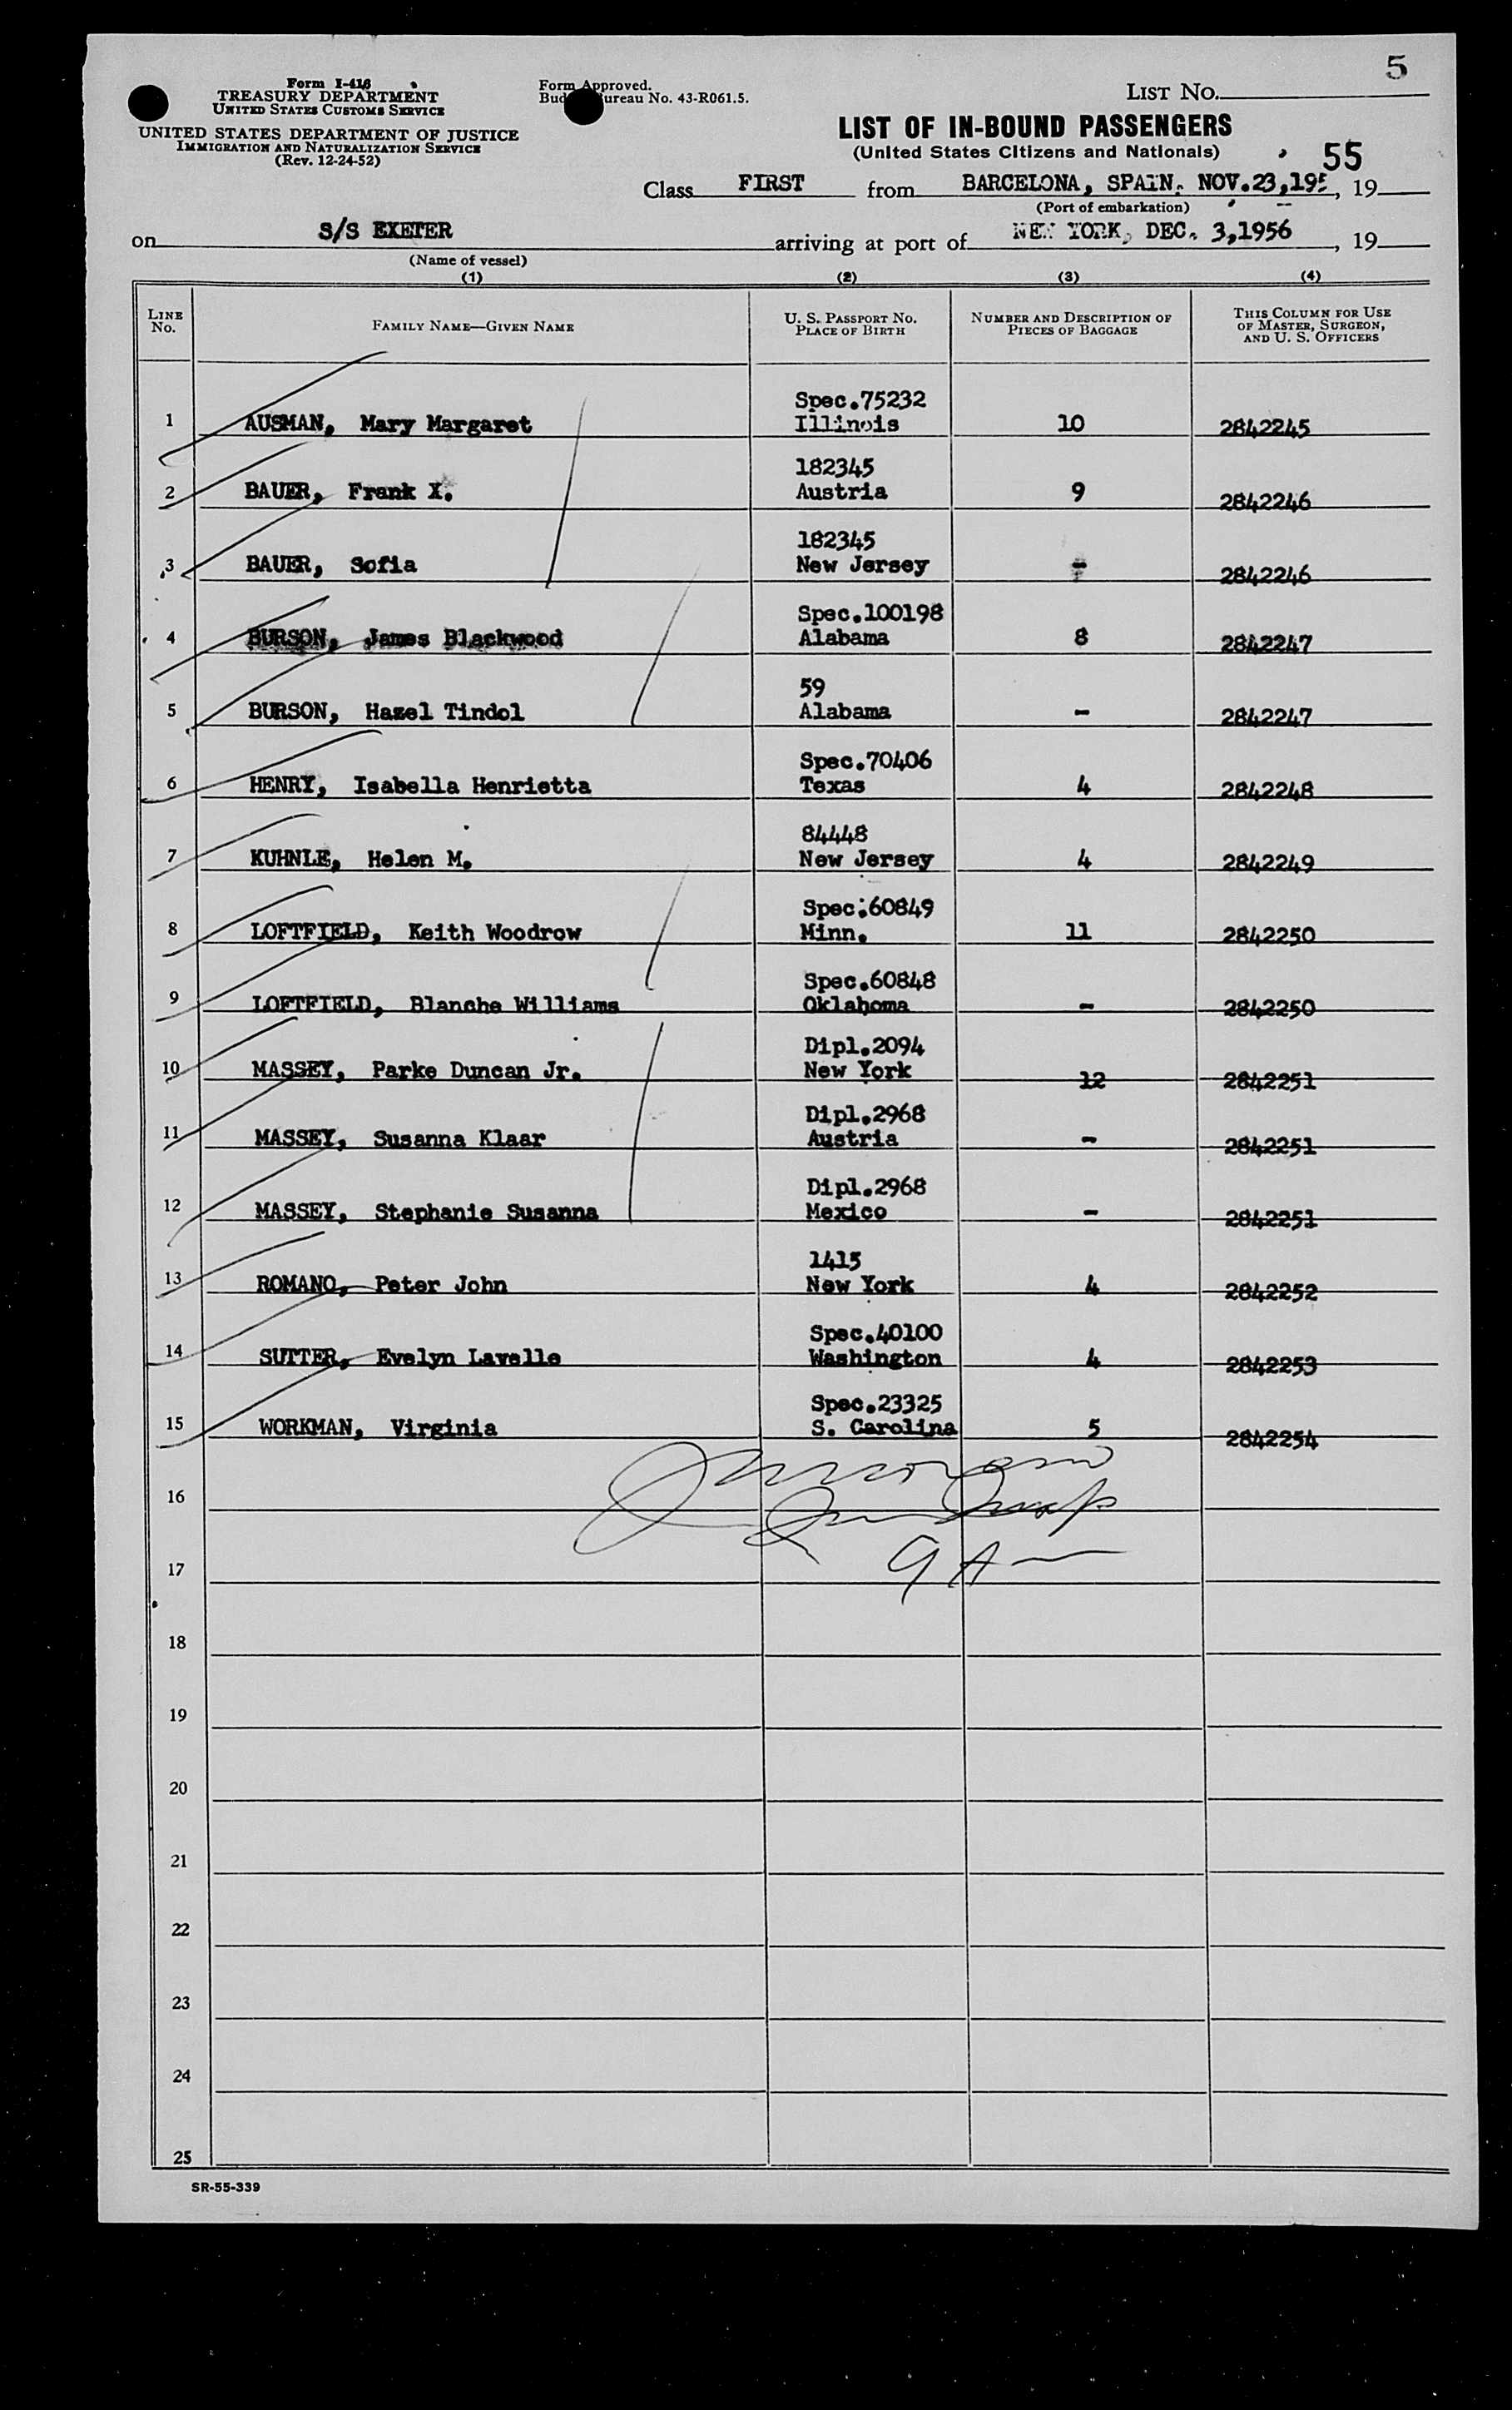 5
Form I-418
TREASURY DEPARTMENT
UNITED STATES CUSTOMS SERVICE
UNITED STATES DEPARTMENT OF JUSTICE
IMMIGRATION AND NATURALIZATION SERVICE
(Rev. 12-24-52)
Form Approved.
Bud ureau No. 43-R061.5.
LIST NO.
LIST OF IN-BOUND PASSENGERS
(United States Citizens and Nationals)
55
Class FIRST from BARCELONA, SPAIN. NOV.23,195, 19
(Port of embarkation)
on S/S EXETER arriving at port of NEW YORK, DEC. 3,1956, 19
(Name of vessel)
(1) (2) (3) (4)
LINE No. FAMILY NAME—GIVEN NAME U. S. PASSPORT NO. PLACE OF BIRTH NUMBER AND DESCRIPTION OF PIECES OF BAGGAGE THIS COLUMN FOR USE OF MASTER, SURGEON, AND U. S. OFFICERS
Spec.75232
1 AUSMAN, Mary Margaret Illinois 10 2842245
182345
2 BAUER, Frank X. Austria 9 2842246
182345
3 BAUER, Sofia New Jersey - 2842246
Spec.100198
4 BURSON, James Blackwood Alabama 8 2842247
59
5 BURSON, Hazel Tindol Alabama - 2842247
Spec.70406
6 HENRY, Isabella Henrietta Texas 4 2842248
84448
7 KUHNLE, Helen M. New Jersey 4 2842249
Spec.60849
8 LOFTFIELD, Keith Woodrow Minn. 11 2842250
Spec.60848
9 LOFTFIELD, Blanche Williams Oklahoma - 2842250
Dipl.2094
10 MASSEY, Parke Duncan Jr. New York 12 2842251
Dipl.2968
11 MASSEY, Susanna Klaar Austria - 2842251
Dipl.2968
12 MASSEY, Stephanie Susanna Mexico - 2842251
1415
13 ROMANO, Peter John New York 4 2842252
Spec.40100
14 SUTTER, Evelyn Lavelle Washington 4 2842253
Spec.23325
15 WORKMAN, Virginia S. Carolina 5 2842254
16
17
18
19
20
21
22
23
24
25
SR-55-339